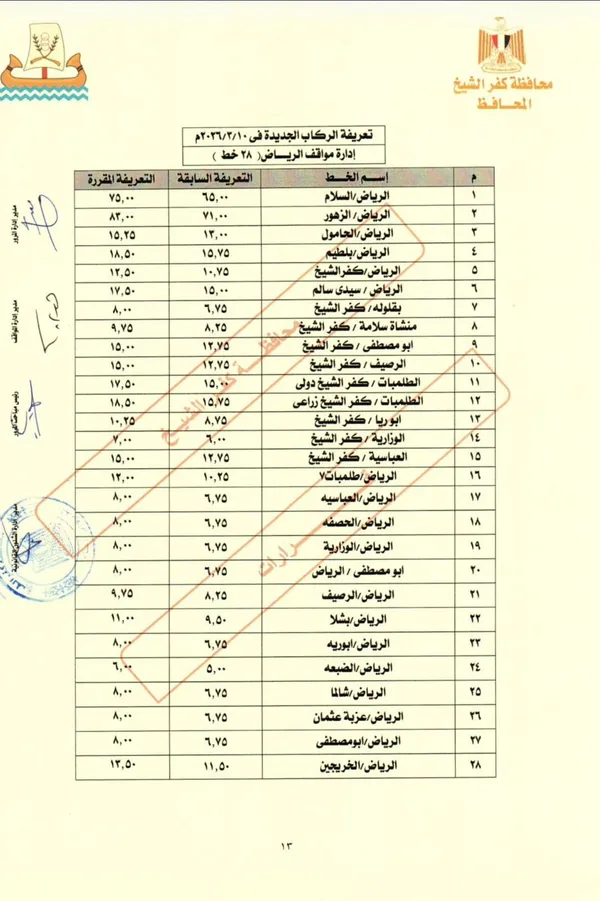 محافظة كفر الشيخ
المحافظ
تعريفة الركاب الجديدة فى ٢٠٢٦/٣/١٠م
إدارة مواقف الرياض( ٢٨ خط )
م إسم الخط التعريفة السابقة التعريفة المقررة
١ الرياض/السلام ٦٥,٠٠ ٧٥,٠٠
٢ الرياض/الزهور ٧١,٠٠ ٨٣,٠٠
٣ الرياض/الحامول ١٣,٠٠ ١٥,٢٥
٤ الرياض/بلطيم ١٥,٧٥ ١٨,٥٠
٥ الرياض/كفرالشيخ ١٠,٧٥ ١٢,٥٠
٦ الرياض / سيدى سالم ١٥,٠٠ ١٧,٥٠
٧ بقلوله/ كفر الشيخ ٦,٧٥ ٨,٠٠
٨ منشاة سلامة / كفر الشيخ ٨,٢٥ ٩,٧٥
٩ ابو مصطفى / كفر الشيخ ١٢,٧٥ ١٥,٠٠
١٠ الرصيف / كفر الشيخ ١٢,٧٥ ١٥,٠٠
١١ الطلمبات / كفر الشيخ دولى ١٥,٠٠ ١٧,٥٠
١٢ الطلمبات / كفر الشيخ زراعى ١٥,٧٥ ١٨,٥٠
١٣ ابوريا / كفر الشيخ ٨,٧٥ ١٠,٢٥
١٤ الوزارية / كفر الشيخ ٦,٠٠ ٧,٠٠
١٥ العباسية / كفر الشيخ ١٢,٧٥ ١٥,٠٠
١٦ الرياض/طلمبات٧ ١٠,٢٥ ١٢,٠٠
١٧ الرياض/العباسيه ٦,٧٥ ٨,٠٠
١٨ الرياض/الحصفه ٦,٧٥ ٨,٠٠
١٩ الرياض/الوزارية ٦,٧٥ ٨,٠٠
٢٠ ابو مصطفى / الرياض ٦,٧٥ ٨,٠٠
٢١ الرياض/الرصيف ٨,٢٥ ٩,٧٥
٢٢ الرياض/بشلا ٩,٥٠ ١١,٠٠
٢٣ الرياض/ابوريه ٦,٧٥ ٨,٠٠
٢٤ الرياض/الضبعه ٥,٠٠ ٦,٠٠
٢٥ الرياض/شالما ٦,٧٥ ٨,٠٠
٢٦ الرياض/عزبة عثمان ٦,٧٥ ٨,٠٠
٢٧ الرياض/ابومصطفى ٦,٧٥ ٨,٠٠
٢٨ الرياض/الخريجين ١١,٥٠ ١٣,٥٠
محافظة كفر الشيخ
مدير ادارة المرور
مدير ادارة المواقف
رئيس مباحث المرور
مدير ادارة الشئون القانونية
١٣